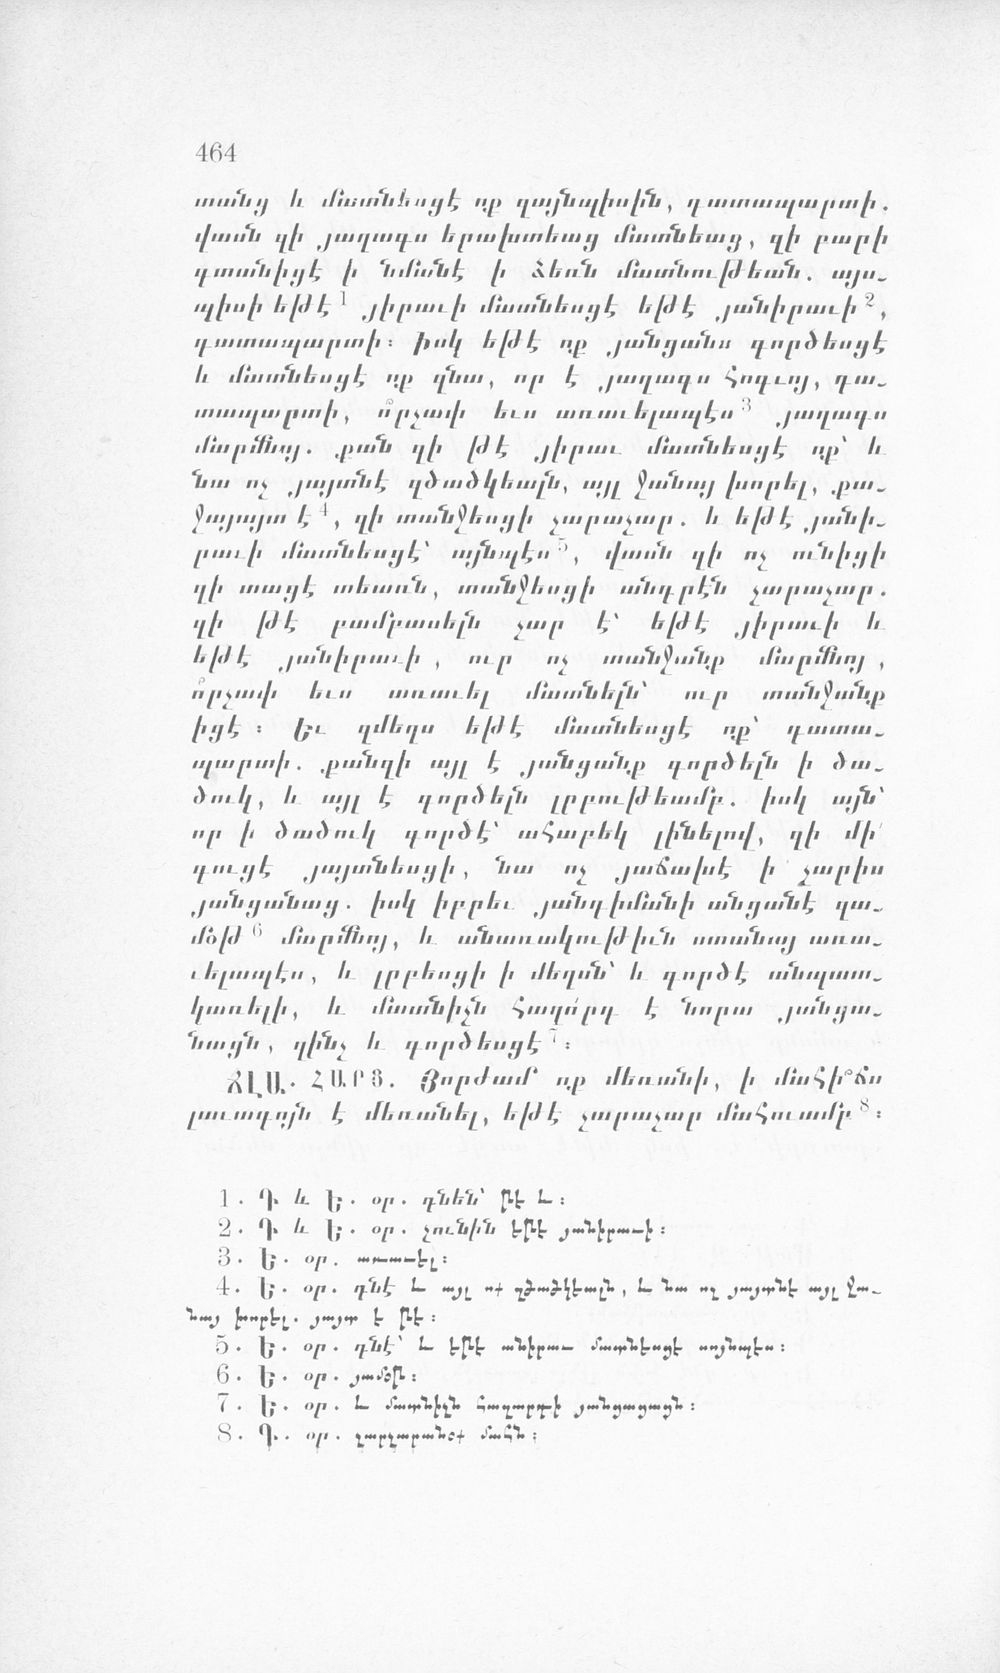 464
տանց և մատնեսցէ ոք զայնպիսին, դատապարտի.
վասն զի յաղագս երախտեաց մատնեաց, զի բարի
գտանիցէ ի նմանէ ի ձեռն մատնութեան. այս-
պիսի եթէ 1 յիրաւի մատնեսցէ եթէ յանիրաւի 2,
դատապարտի։ Իսկ եթէ ոք յանցանս գործեսցէ
և մատնեսցէ ոք զնա, որ է յաղագս հոգւոյ, դա-
տապարտի, ո՞րչափ ևս առաւելապէս 3 յաղագս
մարմնոյ. քան զի թէ յիրաւ մատնեսցէ ոք՝ և
նա ոչ յայտնէ զծածկեալն, այլ ջանայ խորել, քա-
ջայայտ է 4, զի տանջեսցի չարաչար. և եթէ յանի-
րաւի մատնեսցէ՝ այնպէս 5, վասն զի ոչ ունիցի
զի տացէ տեառն, տանջեսցի անդրէն չարաչար.
զի թէ բամբասելն չար է՝ եթէ յիրաւի և
եթէ յանիրաւի, ուր ոչ տանջանք մարմնոյ,
ո՞րչափ ևս առաւել մատնելն՝ ուր տանջանք
իցէ։ Եւ զմեղս եթէ մատնեսցէ ոք՝ դատա-
պարտի. քանզի այլ է յանցանք գործելն ի ծա-
ծուկ, և այլ է գործելն լրբութեամբ. իսկ այն՝
որ ի ծածուկ գործէ՝ ահաբեկ լինելով, զի մի՛
գուցէ յայտնեսցի, նա ոչ յաճախէ ի չարիս
յանցանաց. իսկ իբրեւ յանդիմանի անցանէ զա-
մօթ 6 մարմնոյ, և անառակութիւն ստանայ առա-
ւելապէս, և լրբեսցի ի մեղսն՝ և գործէ անպատ-
կառելի, և մատնիչն հաղորդ է նորա յանցա-
նացն, զինչ և գործեսցէ 7։
ՃԼԱ. ՀԱՐՑ. Յորժամ ոք մեռանի, ի մահի՞ճս
լաւագոյն է մեռանել, եթէ չարաչար մահուամբ 8։
1. Դ և Ե. օր. դնեն՝ թէ և։
2. Դ և Ե. օր. չունին եթէ յանիրաւի։
3. Ե. օր. առաւել։
4. Ե. օր. դնէ և այլ ոք զծածկեալն, և նա ոչ յայտնէ այլ ջա-
նայ խորել. յայտ է թէ։
5. Ե. օր. դնէ՝ և եթէ անիրաւ մատնեսցէ սոյնպէս։
6. Ե. օր. յամօթ։
7. Ե. օր. և մատնիչն հաղարտի յանցացացն։
8. Դ. օր. չարչարանօք մահն։